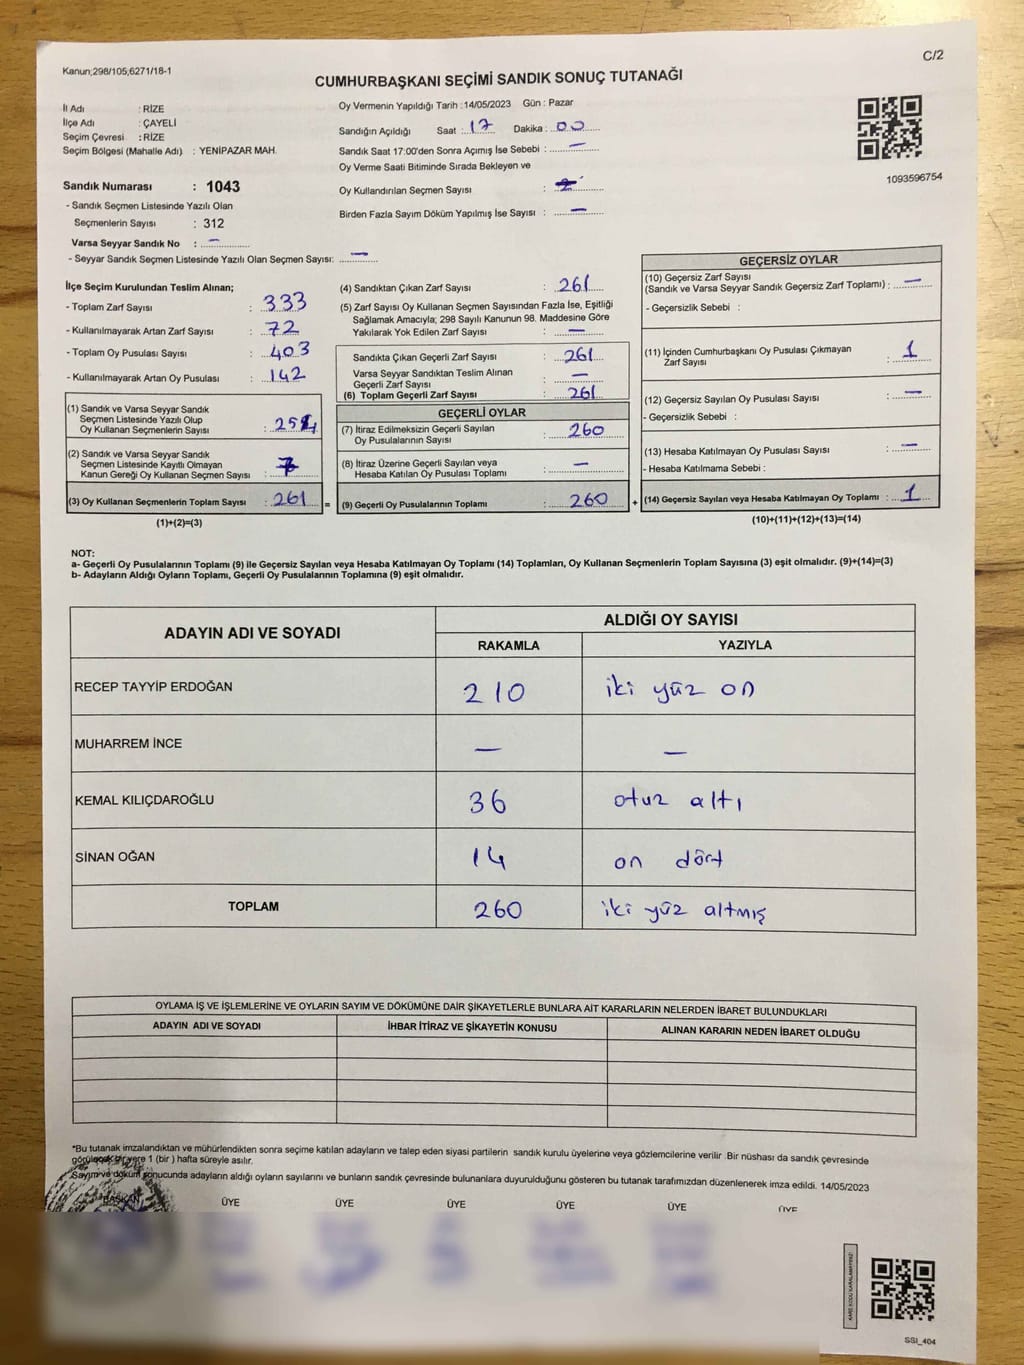 C/2
Kanun;298/105;6271/18-1
CUMHURBAŞKANI SEÇİMİ SANDIK SONUÇ TUTANAĞI
İl Adı : RİZE
İlçe Adı : ÇAYELİ
Seçim Çevresi : RİZE
Seçim Bölgesi (Mahalle Adı) : YENİPAZAR MAH.
Sandık Numarası : 1043
- Sandık Seçmen Listesinde Yazılı Olan
Seçmenlerin Sayısı : 312
Varsa Seyyar Sandık No : —
- Seyyar Sandık Seçmen Listesinde Yazılı Olan Seçmen Sayısı: —
Oy Vermenin Yapıldığı Tarih :14/05/2023 Gün : Pazar
Sandığın Açıldığı Saat : 17 Dakika : 00
Sandık Saat 17:00'den Sonra Açımış İse Sebebi : —
Oy Verme Saati Bitiminde Sırada Bekleyen ve
Oy Kullandırılan Seçmen Sayısı :
Birden Fazla Sayım Döküm Yapılmış İse Sayısı : —
1093596754
İlçe Seçim Kurulundan Teslim Alınan;
- Toplam Zarf Sayısı : 333
- Kullanılmayarak Artan Zarf Sayısı : 72
- Toplam Oy Pusulası Sayısı : 403
- Kullanılmayarak Artan Oy Pusulası : 142
(1) Sandık ve Varsa Seyyar Sandık
Seçmen Listesinde Yazılı Olup
Oy Kullanan Seçmenlerin Sayısı : 254
(2) Sandık ve Varsa Seyyar Sandık
Seçmen Listesinde Kayıtlı Olmayan
Kanun Gereği Oy Kullanan Seçmen Sayısı : 7
(3) Oy Kullanan Seçmenlerin Toplam Sayısı : 261 =
(1)+(2)=(3)
(4) Sandıktan Çıkan Zarf Sayısı : 261
(5) Zarf Sayısı Oy Kullanan Seçmen Sayısından Fazla İse, Eşitliği
Sağlamak Amacıyla; 298 Sayılı Kanunun 98. Maddesine Göre
Yakılarak Yok Edilen Zarf Sayısı : —
Sandıkta Çıkan Geçerli Zarf Sayısı : 261
Varsa Seyyar Sandıktan Teslim Alınan
Geçerli Zarf Sayısı : —
(6) Toplam Geçerli Zarf Sayısı : 261
GEÇERLİ OYLAR
(7) İtiraz Edilmeksizin Geçerli Sayılan
Oy Pusulalarının Sayısı : 260
(8) İtiraz Üzerine Geçerli Sayılan veya
Hesaba Katılan Oy Pusulası Toplamı : —
(9) Geçerli Oy Pusulalarının Toplamı : 260 +
GEÇERSİZ OYLAR
(10) Geçersiz Zarf Sayısı
(Sandık ve Varsa Seyyar Sandık Geçersiz Zarf Toplamı) : —
- Geçersizlik Sebebi :
(11) İçinden Cumhurbaşkanı Oy Pusulası Çıkmayan
Zarf Sayısı : 1
(12) Geçersiz Sayılan Oy Pusulası Sayısı : —
- Geçersizlik Sebebi :
(13) Hesaba Katılmayan Oy Pusulası Sayısı : —
- Hesaba Katılmama Sebebi :
(14) Geçersiz Sayılan veya Hesaba Katılmayan Oy Toplamı : 1
(10)+(11)+(12)+(13)=(14)
NOT:
a- Geçerli Oy Pusulalarının Toplamı (9) ile Geçersiz Sayılan veya Hesaba Katılmayan Oy Toplamı (14) Toplamları, Oy Kullanan Seçmenlerin Toplam Sayısına (3) eşit olmalıdır. (9)+(14)=(3)
b- Adayların Aldığı Oyların Toplamı, Geçerli Oy Pusulalarının Toplamına (9) eşit olmalıdır.
ADAYIN ADI VE SOYADI ALDIĞI OY SAYISI
RAKAMLA YAZIYLA
RECEP TAYYİP ERDOĞAN 210 iki yüz on
MUHARREM İNCE — —
KEMAL KILIÇDAROĞLU 36 otuz altı
SİNAN OĞAN 14 on dört
TOPLAM 260 iki yüz altmış
OYLAMA İŞ VE İŞLEMLERİNE VE OYLARIN SAYIM VE DÖKÜMÜNE DAİR ŞİKAYETLERLE BUNLARA AİT KARARLARIN NELERDEN İBARET BULUNDUKLARI
ADAYIN ADI VE SOYADI İHBAR İTİRAZ VE ŞİKAYETİN KONUSU ALINAN KARARIN NEDEN İBARET OLDUĞU
*Bu tutanak imzalandıktan ve mühürlendikten sonra seçime katılan adayların ve talep eden siyasi partilerin sandık kurulu üyelerine veya gözlemcilerine verilir .Bir nüshası da sandık çevresinde
görülecek bir yere 1 (bir ) hafta süreyle asılır.
Sayım ve döküm sonucunda adayların aldığı oyların sayılarını ve bunların sandık çevresinde bulunanlara duyurulduğunu gösteren bu tutanak tarafımızdan düzenlenerek imza edildi. 14/05/2023
BAŞKAN ÜYE ÜYE ÜYE ÜYE ÜYE ÜYE
KARE KODU KARALAMAYINIZ!
SSI_404